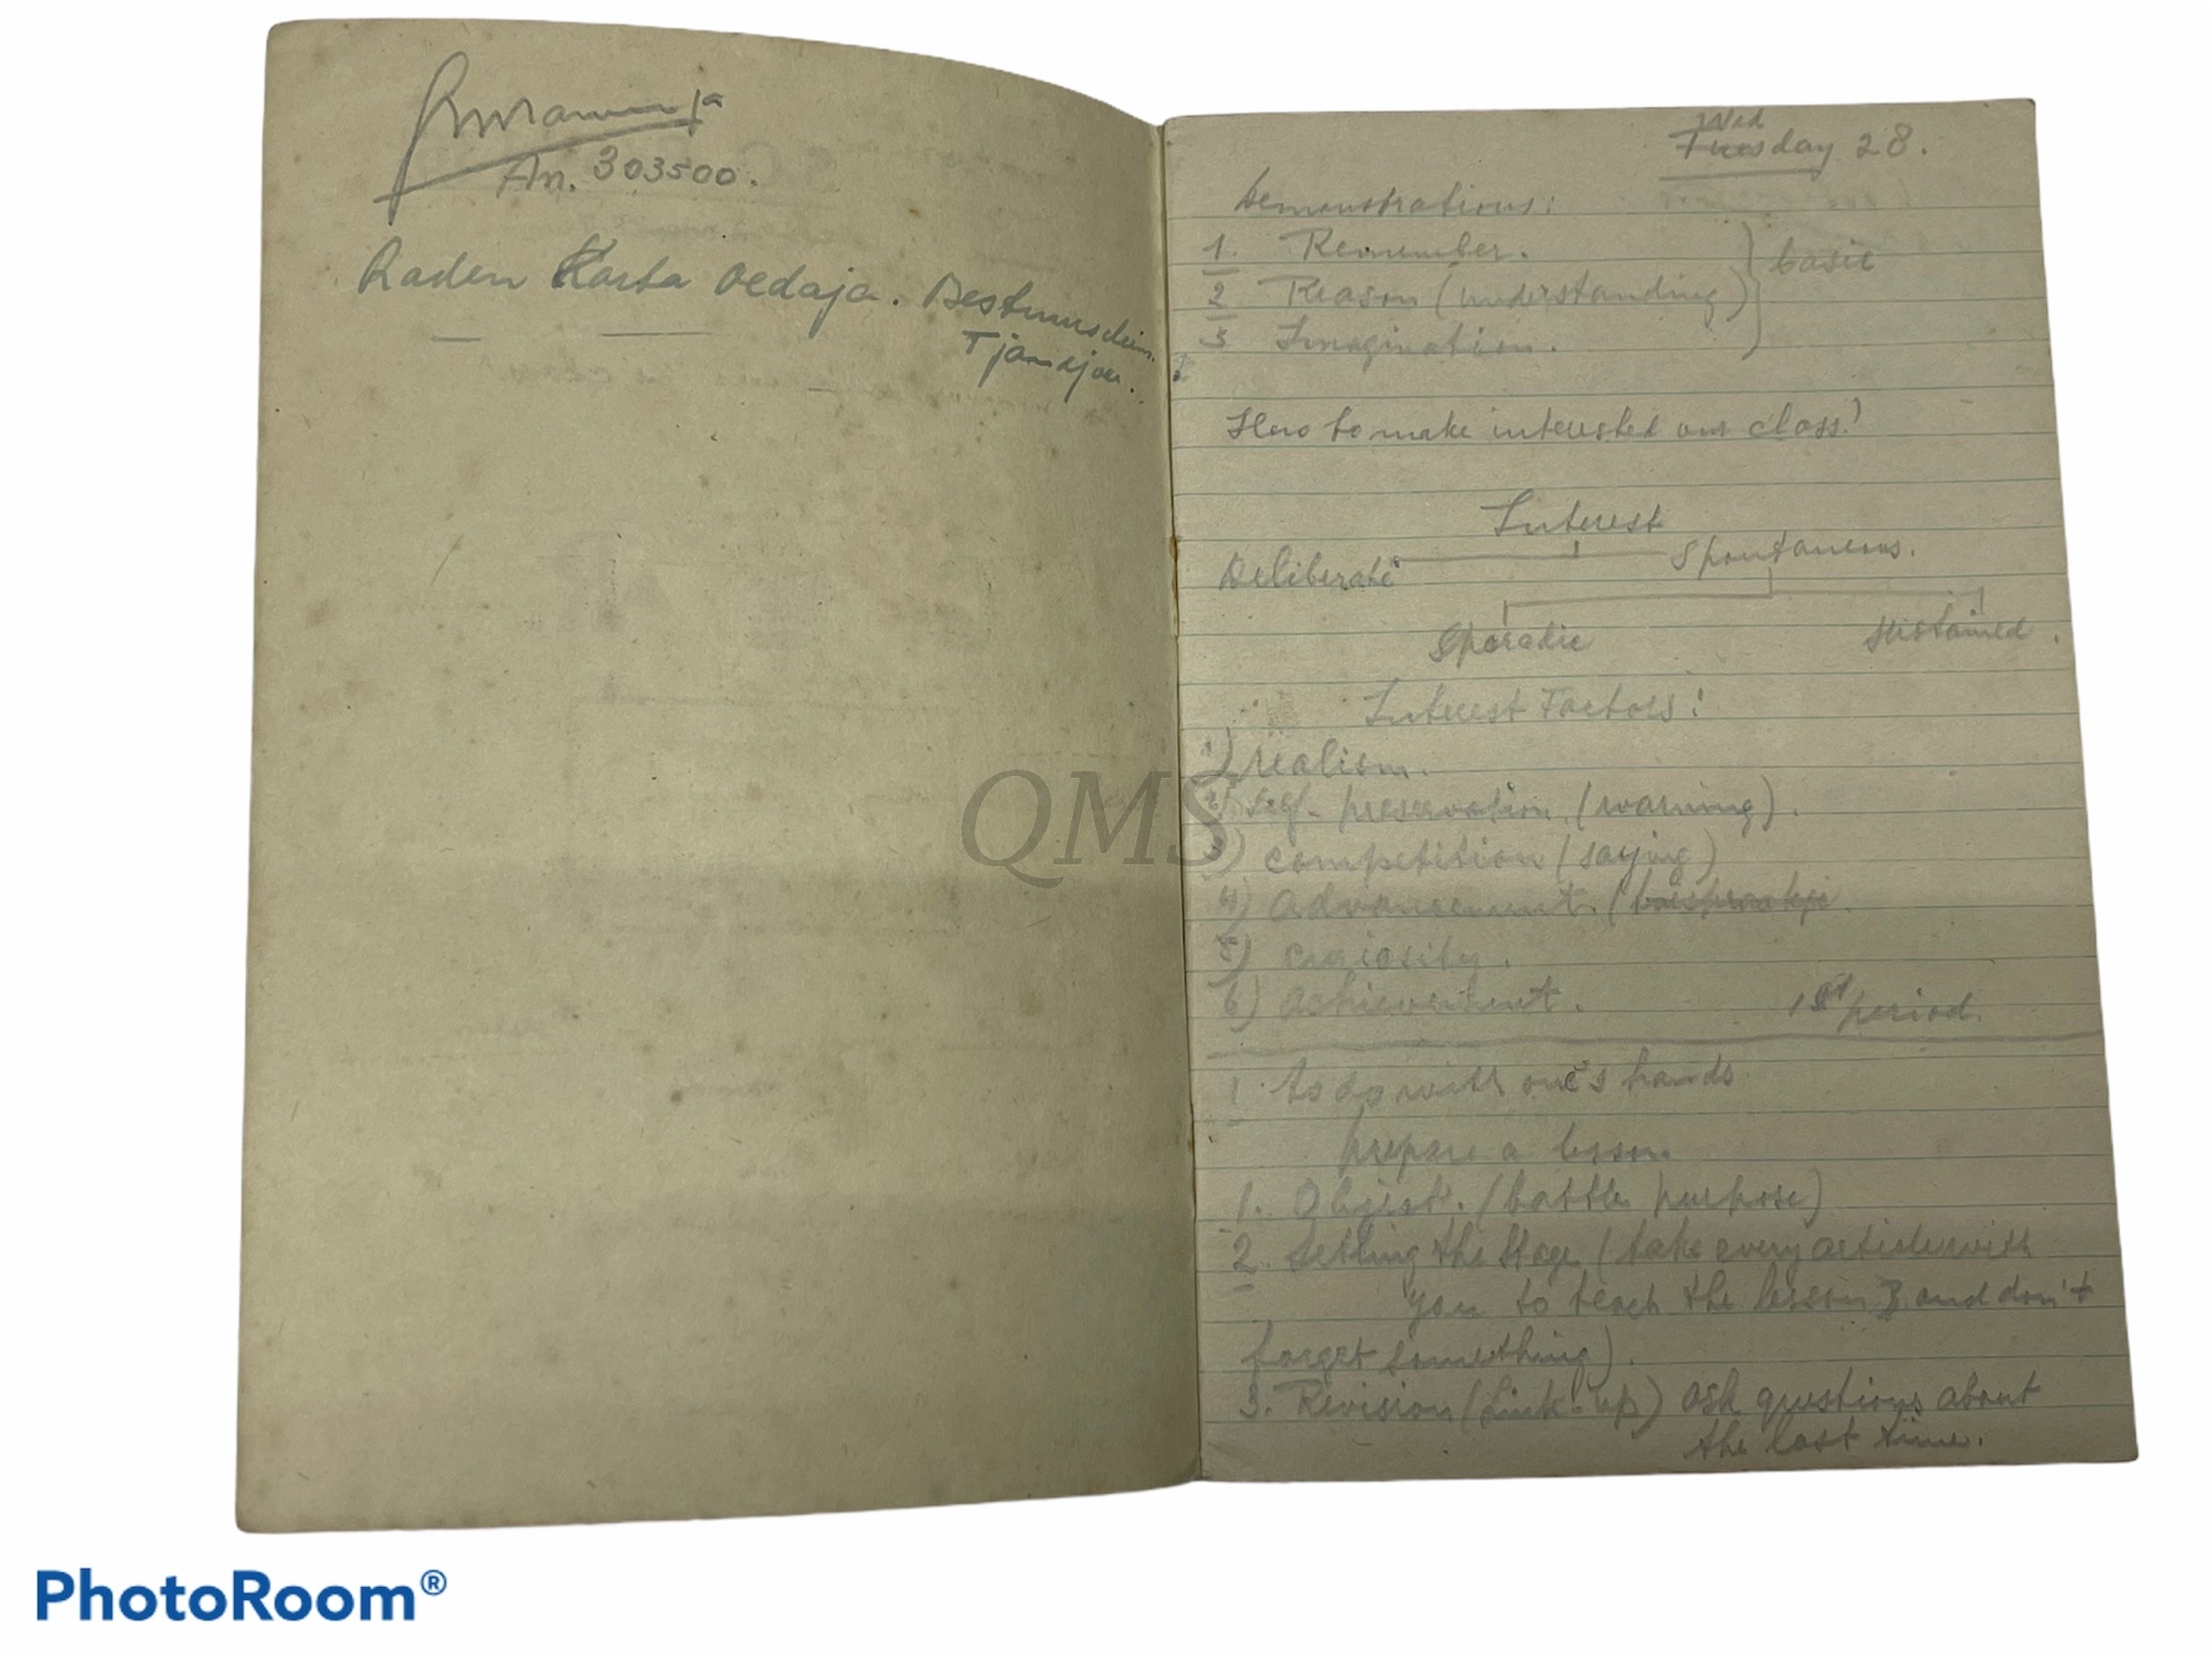 An. 303500.
Raden Karta Oedaja. Bestuurs
Tjandjoer.
Wed
Tuesday 28.
Demonstrations:
1. Remember.
2 Reason (understanding)
3 Imagination.
basic
How to make interested our class!
Interest
Deliberate
Spontaneous.
Sporadic
sustained.
Interest Factors:
1) realism.
2) self-preservation (warning).
3) competition (saying)
4) advancement. (
5) curiosity.
6) achievement.
1st period.
1 to do with one's hands
prepare a lesson
1. Object. (battle purpose)
2. Setting the Stage (take every article with
you to teach the lesson and don't
forget something).
3. Revision (Link-up) ask questions about
the last time.
QMS
PhotoRoom®